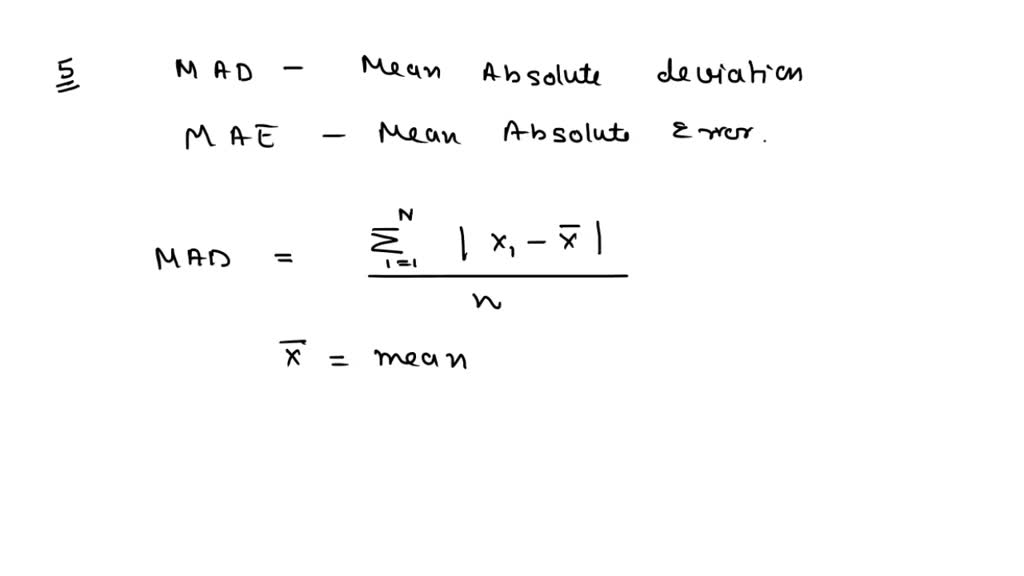 5 MAD - Mean Absolute deviation
MAE - Mean Absolute Error.
N
MAD = Σ | x₁ - x̄ |
i=1
n
x̄ = mean